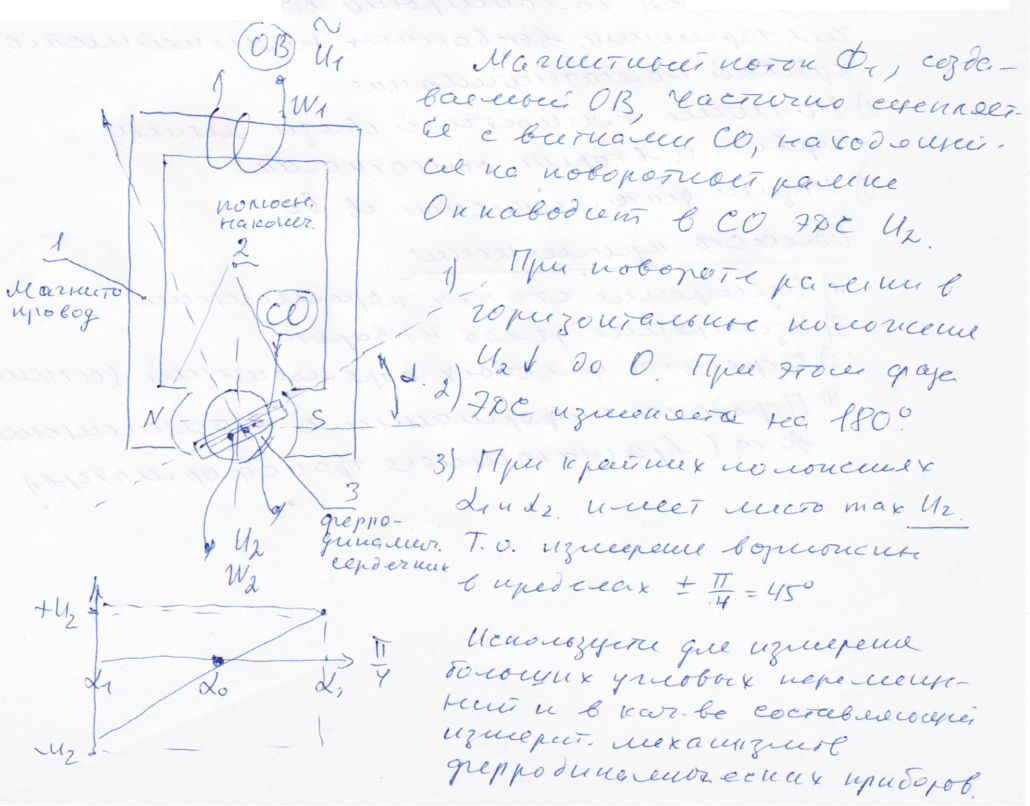 ОВ
~
U1
W1
полюсн.
наконеч.
2
1
Магнито
провод
СО
α.
N
S
3
ферро-
динамич.
сердечник
U2
W2
+U2
α1
α0
α2
π/4
-U2
Магнитный поток Ф1, созда-
ваемый ОВ, частично сцепляет-
ся с витками СО, находящи-
ся на поворотной рамке
Он наводит в СО ЭДС U2.
1) При повороте рамки в
горизонтальное положение
U2↓ до 0. При этом фаза
2) ЭДС изменяется на 180°
3) При крайних положениях
α1 и α2. имеет место max U2.
Т.о. измерение возможны
в пределах ± π/4 = 45°
Используется для измерения
больших угловых перемеще-
ний и в кач-ве составляющей
измерит. механизмов
ферродинамических приборов.